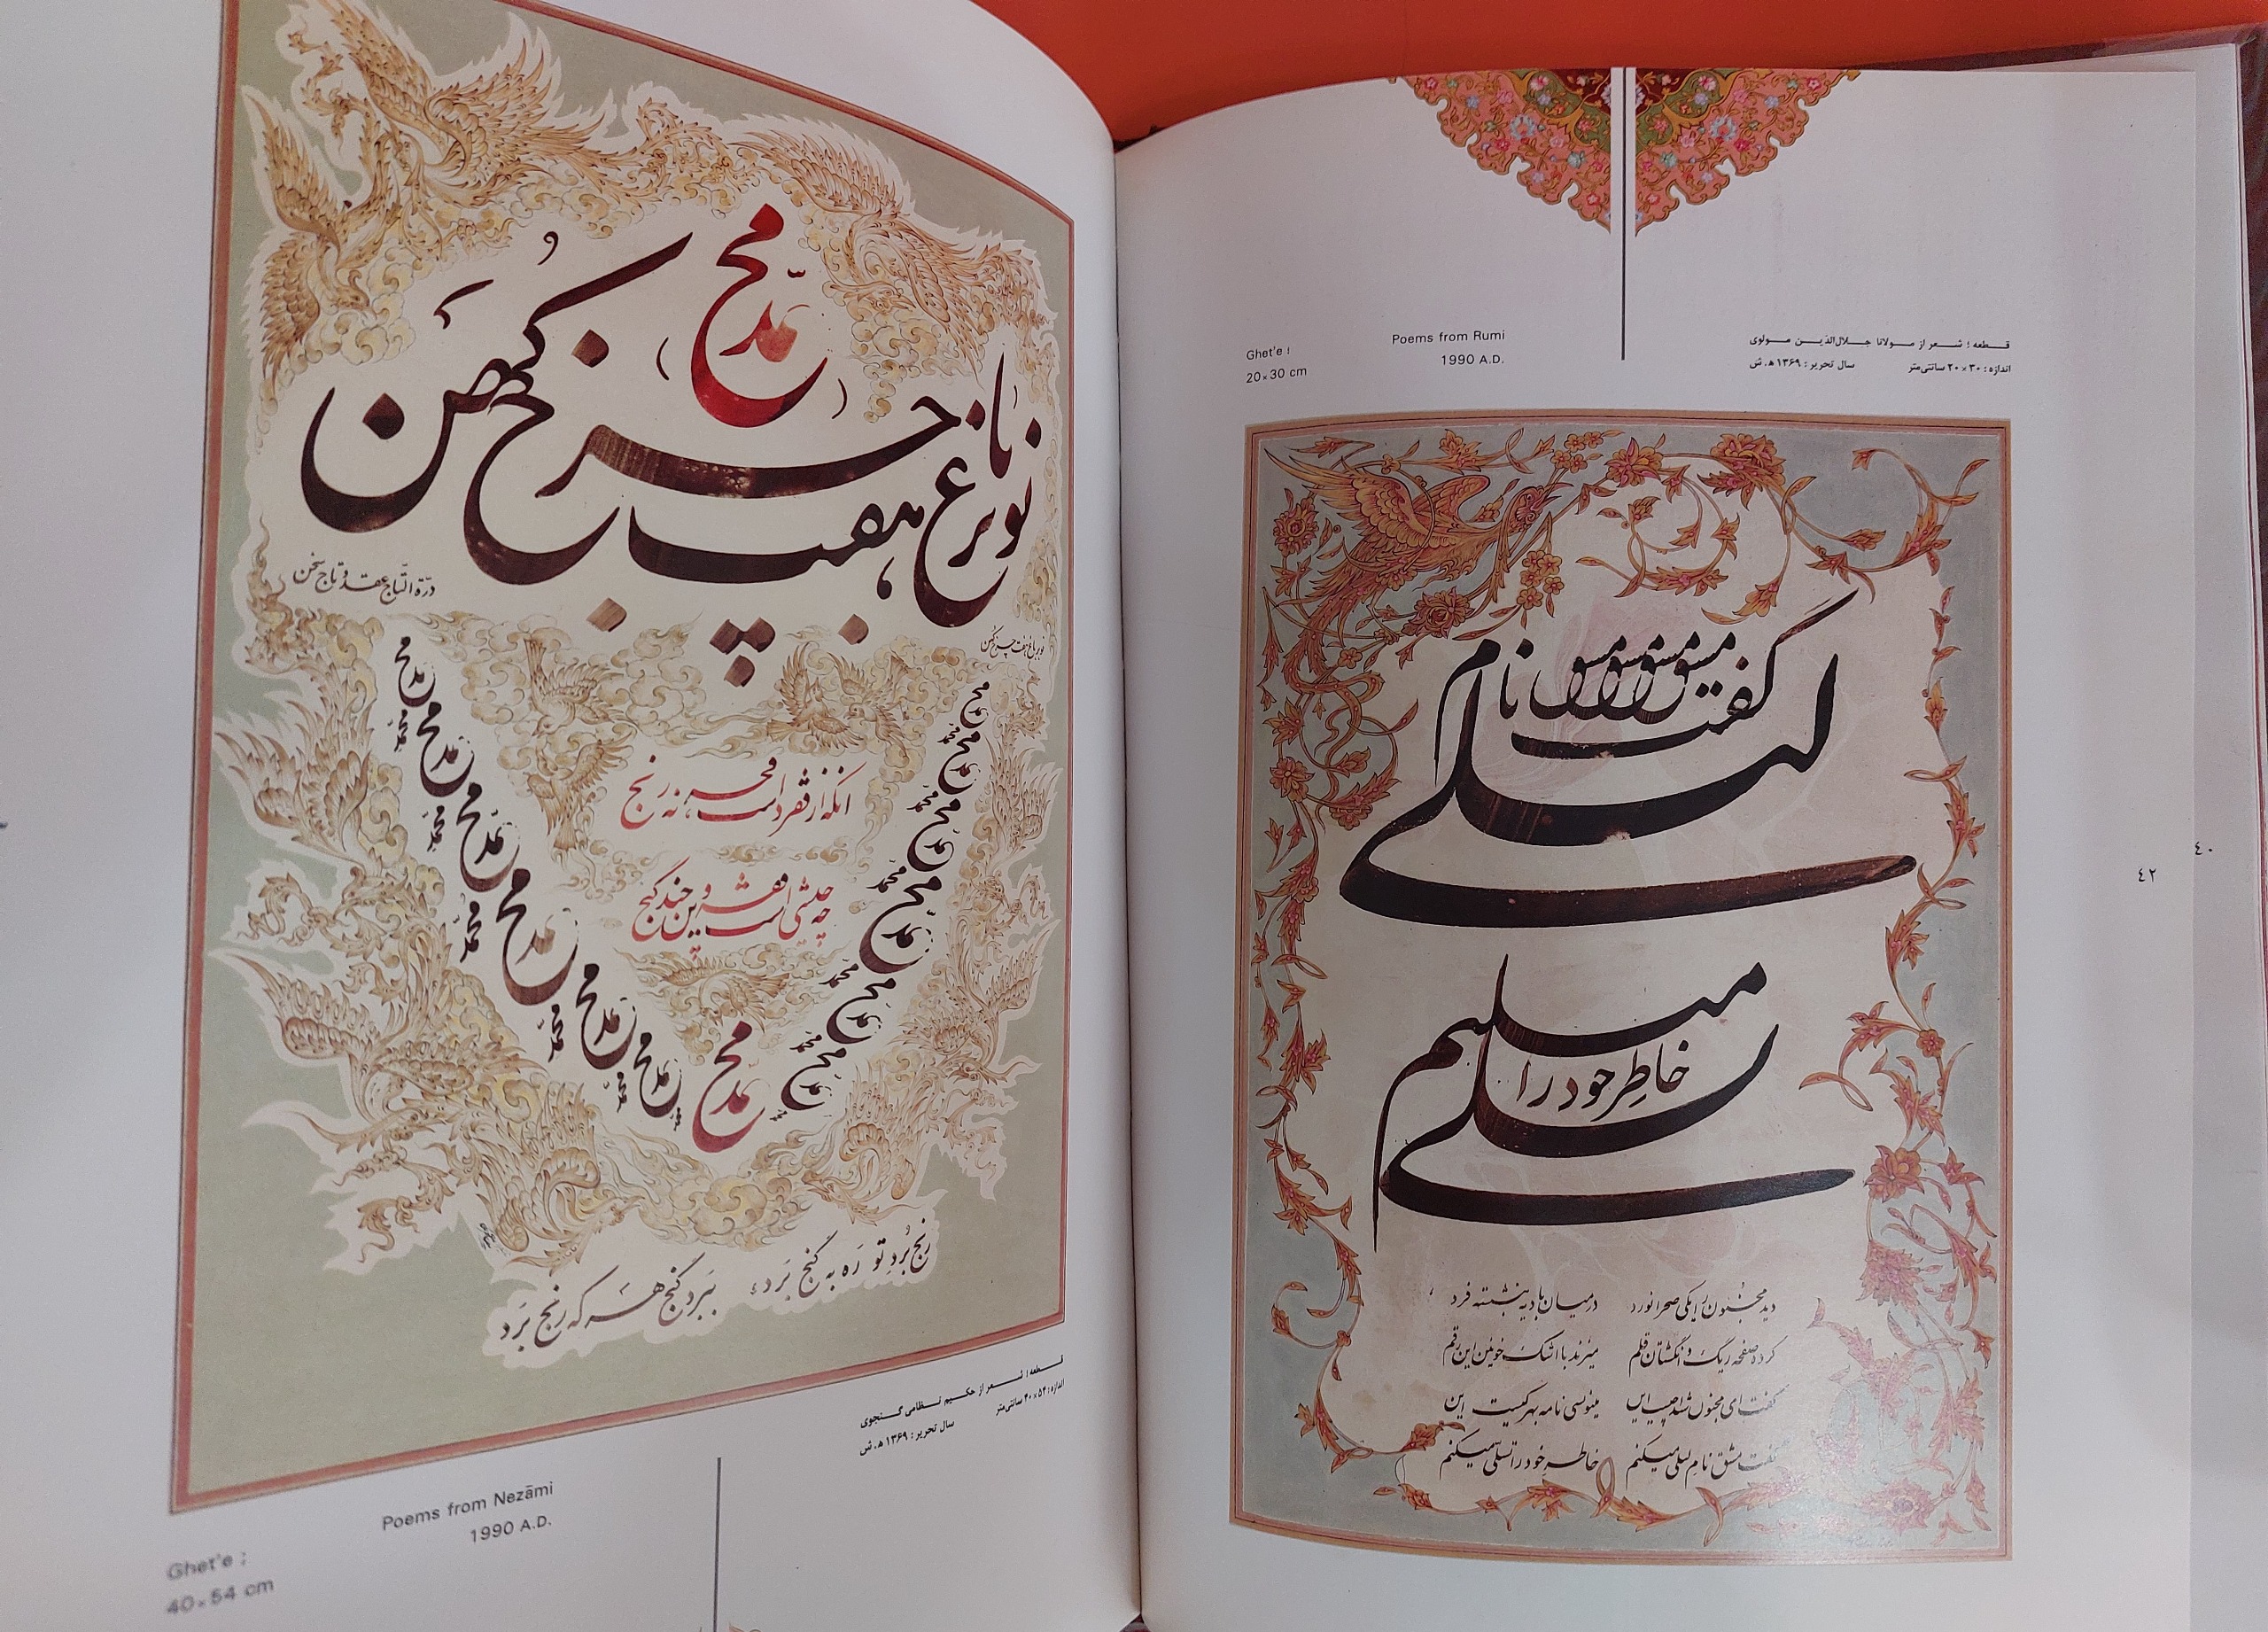 محمد
نوبر باغ هفت چرخ کهن
درّة التّاج عقد و تاج سخن
نوبر باغ هفت چرخ کهن
محمد محمد
محمد محمد
محمد محمد
محمد محمد
محمد محمد
محمد محمد
محمد
آنکه از فقر فخر داشت، نه رنج
چه حدیثی است فقر و این چند گنج
رنج بُرد تو ره به گنج بَرد،
ببرد گنج هر که رنج بَرد
قطعه؛ شعر از حکیم نظامی گنجوی
اندازه: ۵۴×۴۰ سانتی‌متر
سال تحریر: ۱۳۶۹ ه‍.ش
Poems from Nezāmi
1990 A.D.
Ghet'e ;
40×54 cm
Ghet'e ;
20×30 cm
Poems from Rumi
1990 A.D.
قطعه؛ شعر از مولانا جلال‌الدّین مولوی
اندازه: ۳۰×۲۰ سانتی‌متر
سال تحریر: ۱۳۶۹ ه‍.ش
گفت مشق مشق مشق مشق نام
لیلی
میکنم
خاطر خود را
تسلی
دید مجنون را یکی صحرانورد
در میان بادیه بنشسته فرد
کرده صفحه ریگ و انگشتان قلم
میزند با اشک خونین این رقم
گفت ای مجنون شیدا چیست این
مینویسی نامه بهر کیست این
گفت مشق نام لیلی میکنم
خاطر خود را تسلّی میکنم
۴۰
۴۲